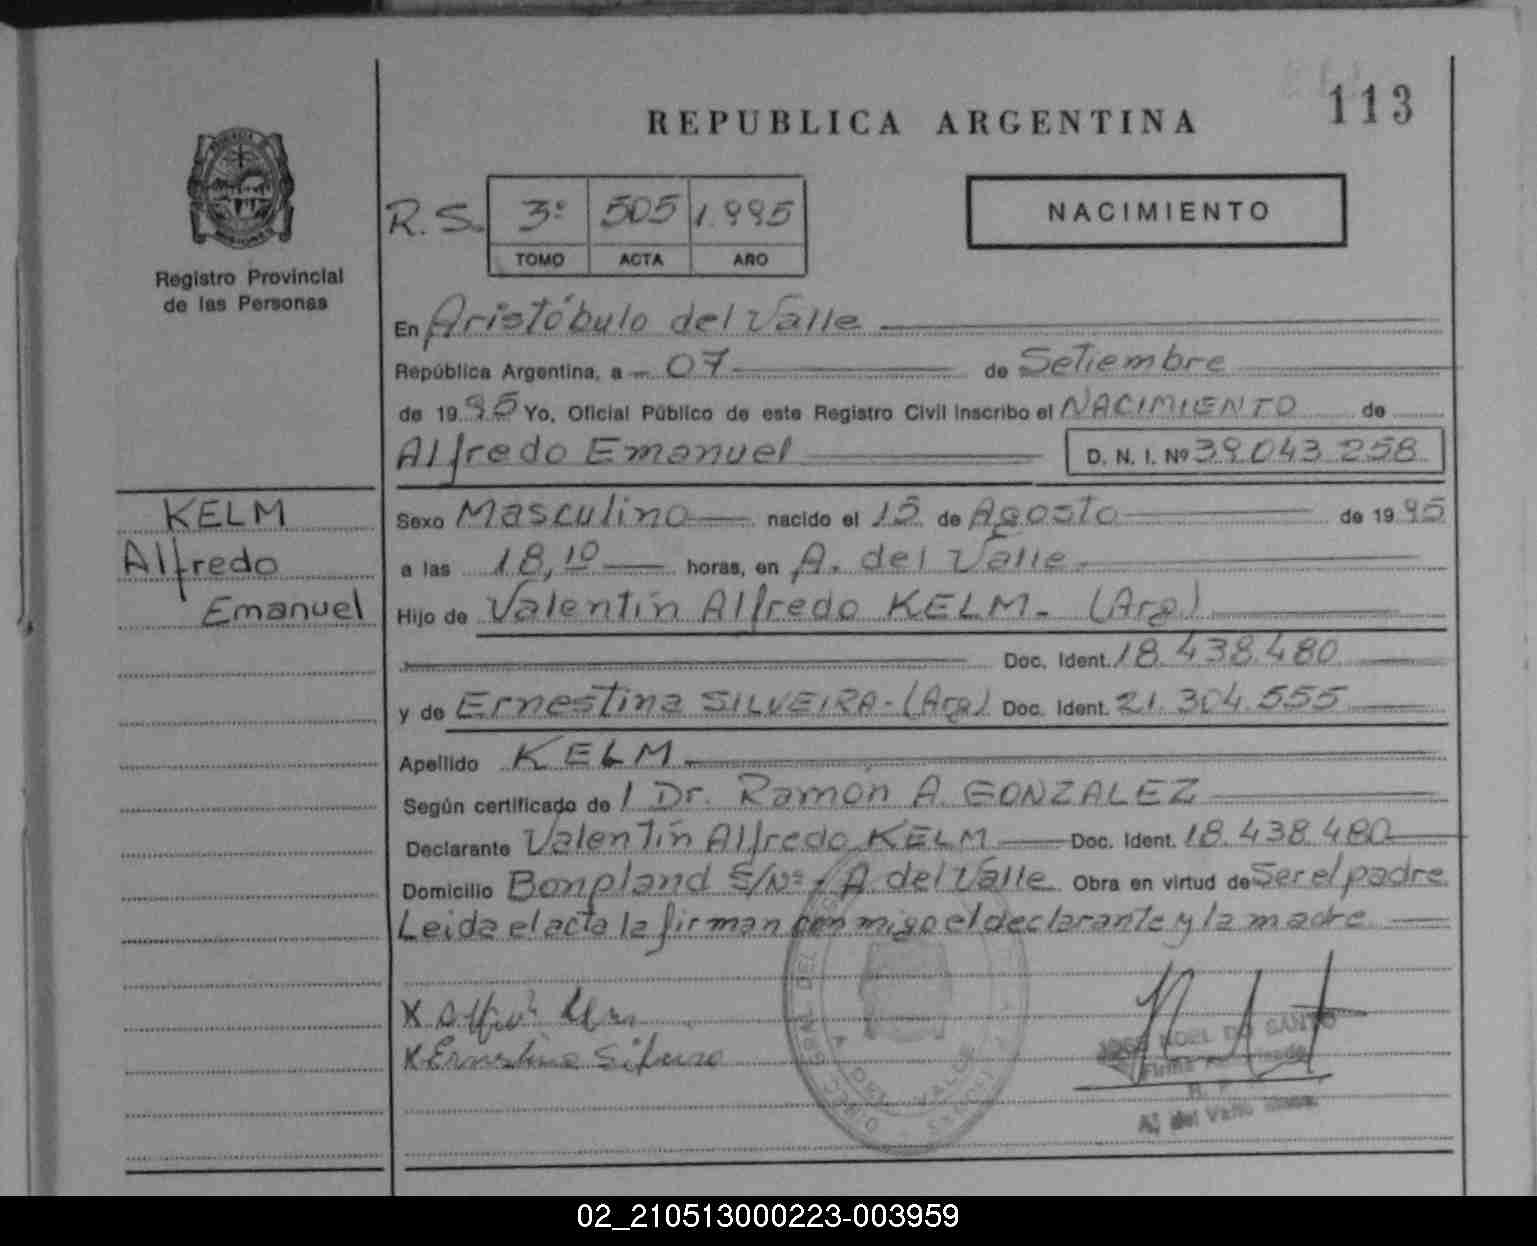 113
REPUBLICA ARGENTINA
Registro Provincial
de las Personas
R.S. 3º 505 1.995
TOMO ACTA AÑO
NACIMIENTO
En Aristóbulo del Valle
República Argentina, a 07 de Setiembre
de 1995 Yo, Oficial Público de este Registro Civil inscribo el NACIMIENTO de
Alfredo Emanuel D. N. I. Nº 39.043.258
KELM
Alfredo
Emanuel
Sexo Masculino nacido el 15 de Agosto de 1995
a las 18,10 horas, en A. del Valle
Hijo de Valentín Alfredo KELM- (Arg)
Doc. Ident. 18.438.480
y de Ernestina SILVEIRA-(Arg) Doc. Ident. 21.304.555
Apellido KELM
Según certificado de l Dr. Ramón A. GONZALEZ
Declarante Valentín Alfredo KELM Doc. Ident. 18.438.480
Domicilio Bonpland S/Nº- A. del Valle Obra en virtud de Ser el padre
Leida el acta la firman con migo el declarante y la madre
X
X Ernestina
JOSE NOEL DO SANTO
Firma
A. del Valle
02_210513000223-003959